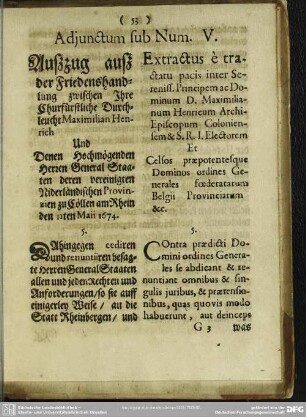 ( 53 )
Adjunctum sub Num. V.
Außzug auß
der Friedenshand-
lung zwischen Ihre
Churfürstliche Durch-
leucht Maximilian Hen-
rich
Und
Denen Hochmögenden
Herren General Staa-
ten deren vereinigten
Niderländischen Provin-
zien zu Cöllen am Rhein
den 11ten Maii 1674.
5.
Dahingegen cediren
und renuntiren besag-
te Herren General Staaten
allen und jeden Rechten und
Anforderungen / so sie auff
einigerley Weise / an die
Statt Rheinbergen / und
Extractus è tra-
ctatu pacis inter Se-
reniss. Principem ac Do-
minum D. Maximilia-
num Henricum Archi-
Episcopum Colonien-
sem & S. R. I. Electorem
Et
Celsos præpotentesque
Dominos ordines Ge-
nerales fœderatarum
Belgii Provinciarum
&c.
5.
Contra prædicti Do-
mini ordines Genera-
les se abdicant & re-
nuntiant omnibus & sin-
gulis juribus, & prætensio-
nibus, quas quovis modo
habuerunt, aut deinceps
G 3 was